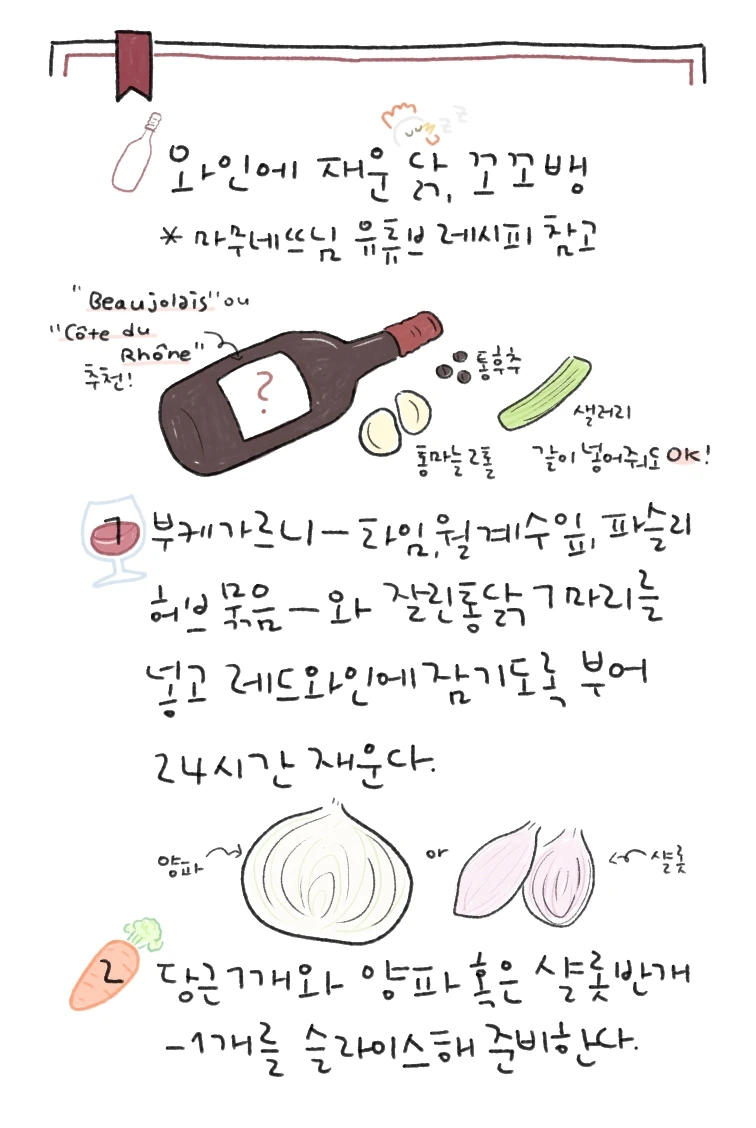 z z
와인에 재운 닭, 꼬꼬뱅
* 마주네쁘님 유튜브 레시피 참고
"Beaujolais" ou
"Côte du
Rhône"
추천!
?
통후추
샐러리
통마늘 2톨
같이 넣어줘도 OK!
1 부케가르니 - 타임, 월계수잎, 파슬리
허브 묶음 - 와 잘린통닭 1마리를
넣고 레드와인에 잠기도록 부어
24시간 재운다.
양파
or
샬롯
2 당근 1개와 양파 혹은 샬롯 반개
-1개를 슬라이스해 준비한다.